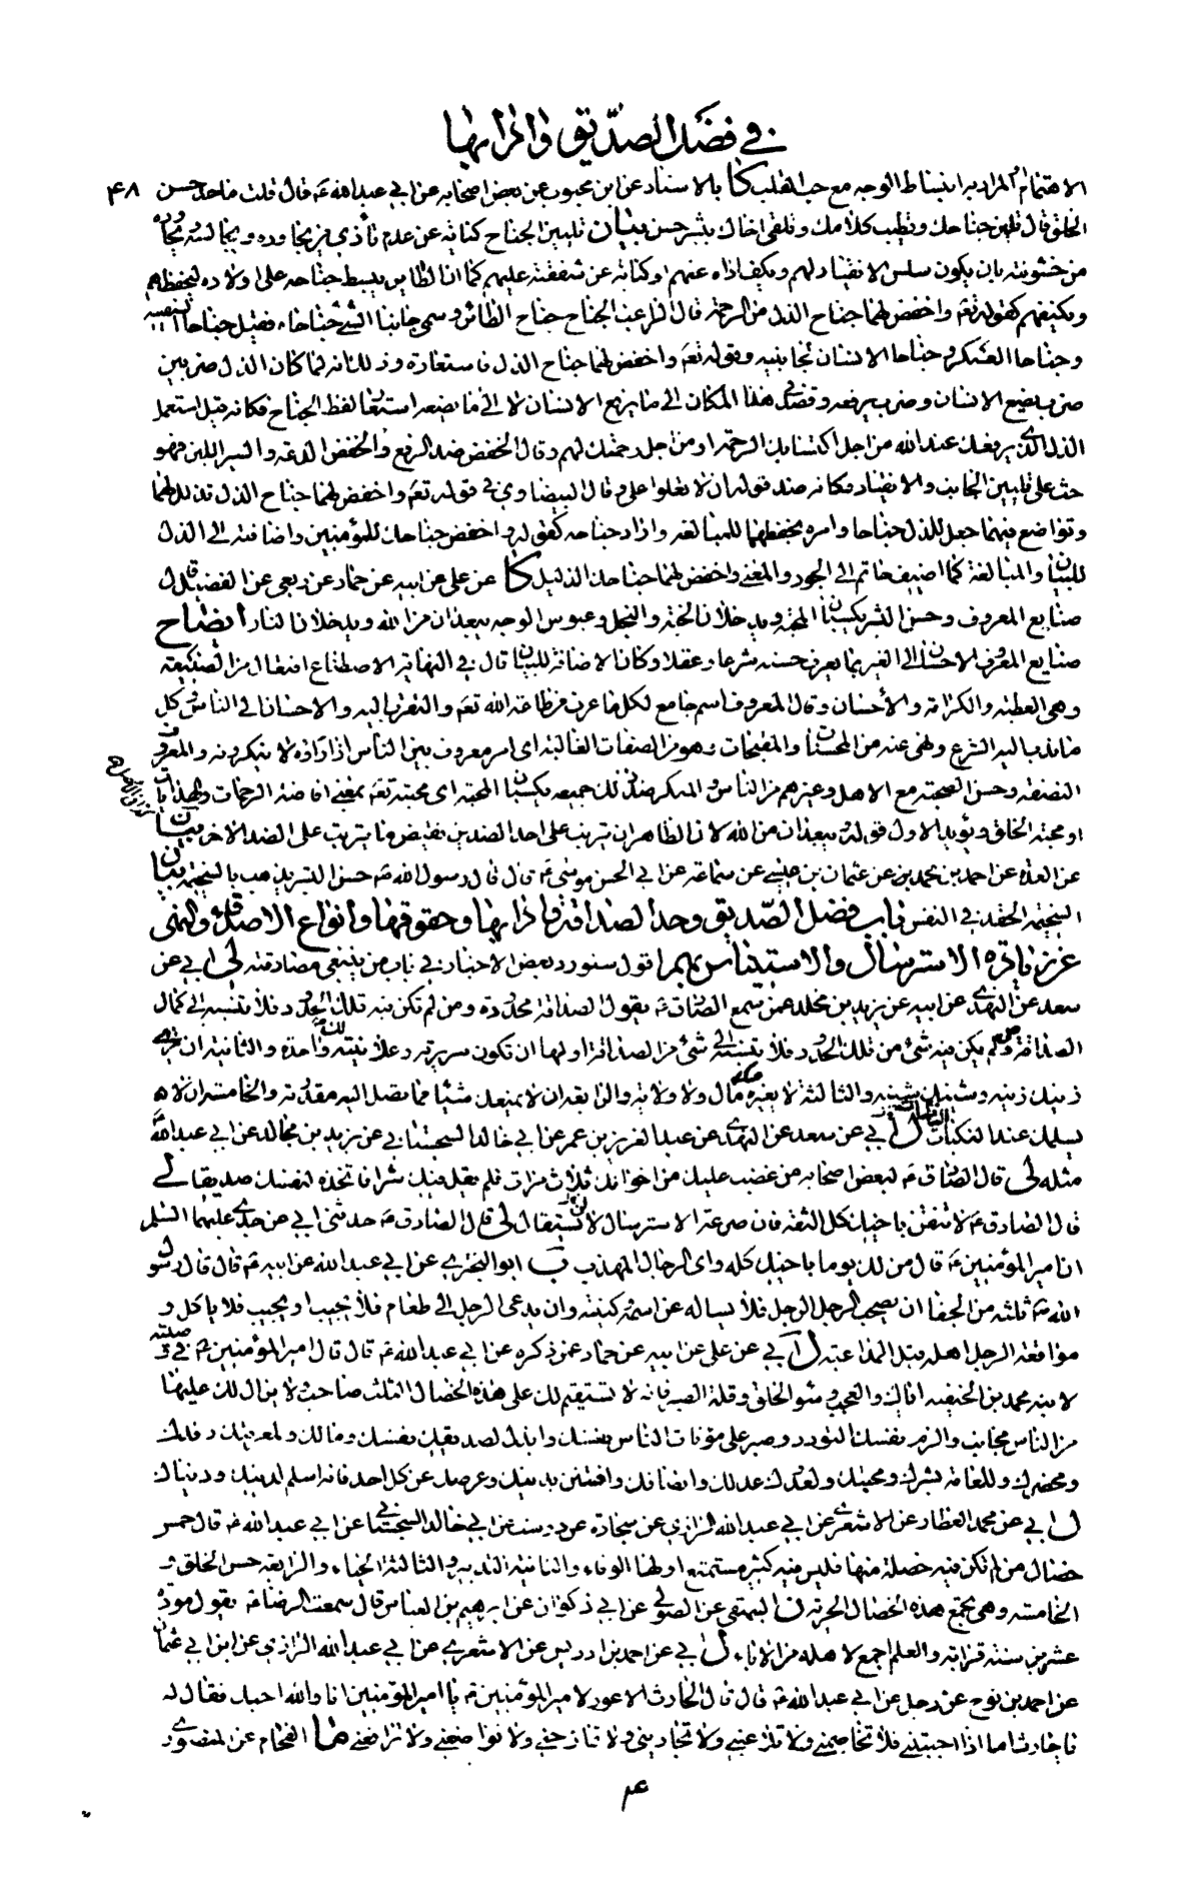 في فضل الصديق و آدابها
الاهتمام المراد به انبساط الوجه مع حب القلب كا بالاسناد عن ابن محبوب عن بعض اصحابه عن ابي عبد الله ع قال قلت ما حد حسن ۴۸
الخلق قال تلين جناحك و تطيب كلامك و تلقى اخاك ببشر حسن بيان تليين الجناح كناية عن عدم تأذي من يجاوره و يجالسه و يحاوره
من خشونته بان يكون سلس الانقياد لهم و يكف اذاه عنهم او كناية عن شفقته عليهم كما ان الطاير يبسط جناحه على اولاده ليحفظهم
و يكنفهم كقوله تع و اخفض لهما جناح الذل من الرحمة قال الراغب الجناح جناح الطائر و سمي جانبا الشئ جناحاه فقيل جناحا السفينة
و جناحا العسكر و جناحا الانسان لجانبيه و قوله تع و اخفض لهما جناح الذل فاستعارة و ذلك انه لما كان الذل ضربين
ضرب يضع الانسان و ضرب يرفعه و قصد في هذا المكان الى ما يرفع الانسان لا الى ما يضعه استعار لفظ الجناح فكانه قيل استعمل
الذل الذي يرفعك عند الله من اجل اكتسابك الرحمة او من اجل رحمتك لهم و قال الخفض ضد الرفع و الخفض الدعة و السير اللين فهو
حث على تليين الجانب و الانقياد فكانه ضد قوله ان لا تعلوا علي و قال البيضاوي في قوله تع و اخفض لهما جناح الذل تذلل لهما
و تواضع فيهما جعل للذل جناحا و امره بخفضهما للمبالغة و اراد جناحه كقوله و اخفض جناحك للمؤمنين و اضافته الى الذل
للبيان و المبالغة كما اضيف حاتم الى الجود و المعنى و اخفض لهما جناحك الذليل كا عن علي عن ابيه عن حماد عن ربعي عن الفضيل قال
صنايع المعروف و حسن البشر يكسبان المحبة و يدخلان الجنة و البخل و عبوس الوجه يبعدان من الله و يدخلان النار ايضاح
صنايع المعروف الاحسان الى الغير بما يعرف حسنه شرعا و عقلا و كان الاضافة للبيان قال في النهاية الاصطناع افتعال من الصنيعة
و هي العطية و الكرامة و الاحسان و قال المعروف اسم جامع لكل ما عرف من طاعة الله تع و التقرب اليه و الاحسان الى الناس و كل
ما ندب اليه الشرع و نهى عنه من المحسنات و المقبحات و هو من الصفات الغالبة اي امر معروف بين الناس اذا رأوه لا ينكرونه و المعروف
النصفة و حسن الصحبة مع الاهل و غيرهم من الناس و المنكر ضد ذلك جميعه يكسبان المحبة اي محبته تع بمعنى افاضة الرحمات و الهدايات
او محبة الخلق و يؤيد الاول قوله يبعدان من الله لان الظاهر ان يترتب على احد الضدين نقيض ما يترتب على الضد الاخر
عن العدة عن احمد بن محمد بن عن عثمان بن عيسى عن سماعة عن ابي الحسن موسى ع قال قال رسول الله ص حسن البشر يذهب بالسخيمة بيان
السخيمة الحقد في النفس باب فضل الصديق و حد الصداقة و آدابها و حقوقها و انواع الاصدقاء و النهي
عن زيادة الاسترسال و الاستيناس بهم اقول سنورد بعض الاخبار في باب من ينبغي مصادقته لى ابي عن
سعد عن النهدي عن ابيه عن يزيد بن مخلد عمن سمع الصادق ع يقول الصداقة محدودة و من لم تكن فيه تلك الحدود فلا تنسبه الى كمال
الصداقة و من لم يكن فيه شئ من تلك الحدود فلا تنسبه الى شئ من الصداقة اولها ان تكون سريرته و علانيته لك واحدة و الثانية ان يرى
زينك زينه و شينك شينه و الثالثة لا يغيره مال و لا ولاية و الرابعة ان لا يمنعك شيئا مما تصل اليه مقدرته و الخامسة ان لا
يسلمك عند النكبات ل ابي عن سعد عن النهدي عن عبد العزيز بن عمر عن ابي خالد السجستاني عن يزيد بن مجالد عن ابي عبد الله
مثله لى قال الصادق ع لبعض اصحابه من غضب عليك من اخوانك ثلاث مرات فلم يقل فيك شرا فاتخذه لنفسك صديقا لى
قال الصادق ع لا تثقن باخيك كل الثقة فان صرعة الاسترسال لن تستقال لى قال الصادق ع حدثني ابي عن جدي عليهما السلم
ان امير المؤمنين ع قال من لك يوما باخيك كله و اي الرجال المهذب ب ابو البختري عن ابي عبد الله عن ابيه ع قال قال رسول
الله ص ثلثة من الجفا ان يصحب الرجل الرجل فلا يساله عن اسمه و كنيته و ان يدعى الرجل الى طعام فلا يجيب او يجيب فلا ياكل و
مواقعة الرجل اهله قبل المداعبة ل ابي عن علي عن ابيه عن حماد عمن ذكره عن ابي عبد الله ع قال قال امير المؤمنين ع في وصيته
لابنه محمد بن الحنفية اياك و العجب و سوء الخلق و قلة الصبر فانه لا تستقيم لك على هذه الخصال الثلث صاحب و لا يزال لك عليها
من الناس مجانب و الزم نفسك التودد و صبر على مؤنات الناس نفسك و ابذل لصديقك نفسك و مالك و لمعرفتك رفدك
و محضرك و للعامة بشرك و محبتك و لعدوك عدلك و انصافك و اضنن بدينك و عرضك عن كل احد فانه اسلم لدينك و دنياك
ل ابي عن محمد العطار عن الاشعري عن ابي عبد الله الرازي عن سجادة عن درست عن ابي خالد السجستاني عن ابي عبد الله ع قال خمس
خصال من لم تكن فيه خصلة منها فليس فيه كثير مستمتع اولها الوفاء و الثانية التدبير و الثالثة الحياء و الرابعة حسن الخلق و
الخامسة و هي تجمع هذه الخصال الحرية ن البيهقي عن الصولي عن ابي ذكوان عن ابرهيم بن العباس قال سمعت الرضا ع يقول مودة
عشرين سنة قرابة و العلم اجمع لاهله من الاباء ل ابي عن احمد بن ادريس عن الاشعري عن ابي عبد الله الرازي عن ابن ابي عثمان
عن احمد بن نوح عن رجل عن ابي عبد الله ع قال قال الحارث الاعور لامير المؤمنين ع يا امير المؤمنين انا و الله احبك فقال له
يا حارث اما اذا احببتني فلا تخاصمني و لا تلاعبني و لا تجاريني و لا تمازحني و لا تواضعني و لا ترافعني ما الفحام عن المنصوري
۴